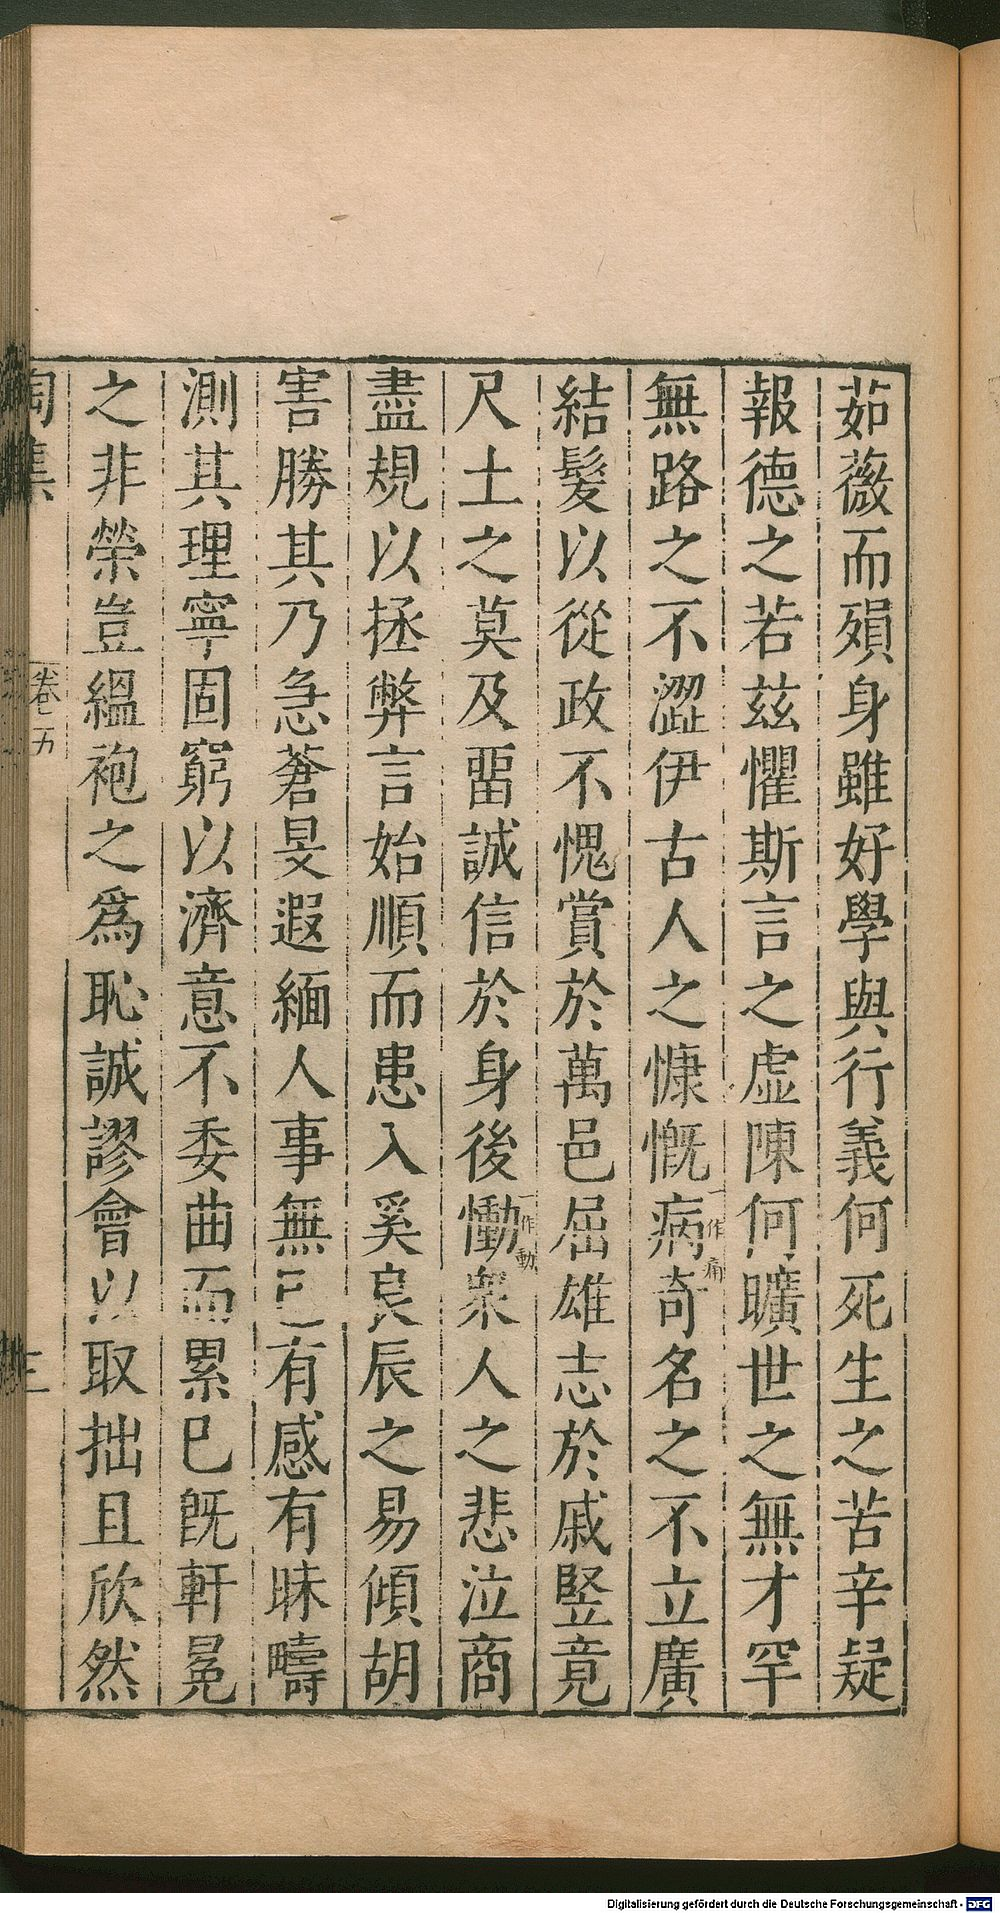 茹薇而殞身雖好學與行義何死生之苦辛疑
報德之若茲懼斯言之虛陳何曠世之無才罕
無路之不澀伊古人之慷慨病一作痛奇名之不立廣
結髮以從政不愧賞於萬邑屈雄志於戚豎竟
尺土之莫及畱誠信於身後慟一作動衆人之悲泣商
盡規以拯弊言始順而患入奚良辰之易傾胡
害勝其乃急蒼旻遐緬人事無已有感有昧疇
測其理寧固窮以濟意不委曲而累已旣軒冕
之非榮豈縕袍之爲恥誠謬會以取拙且欣然
陶集 卷之五
Digitalisierung gefördert durch die Deutsche Forschungsgemeinschaft - DFG